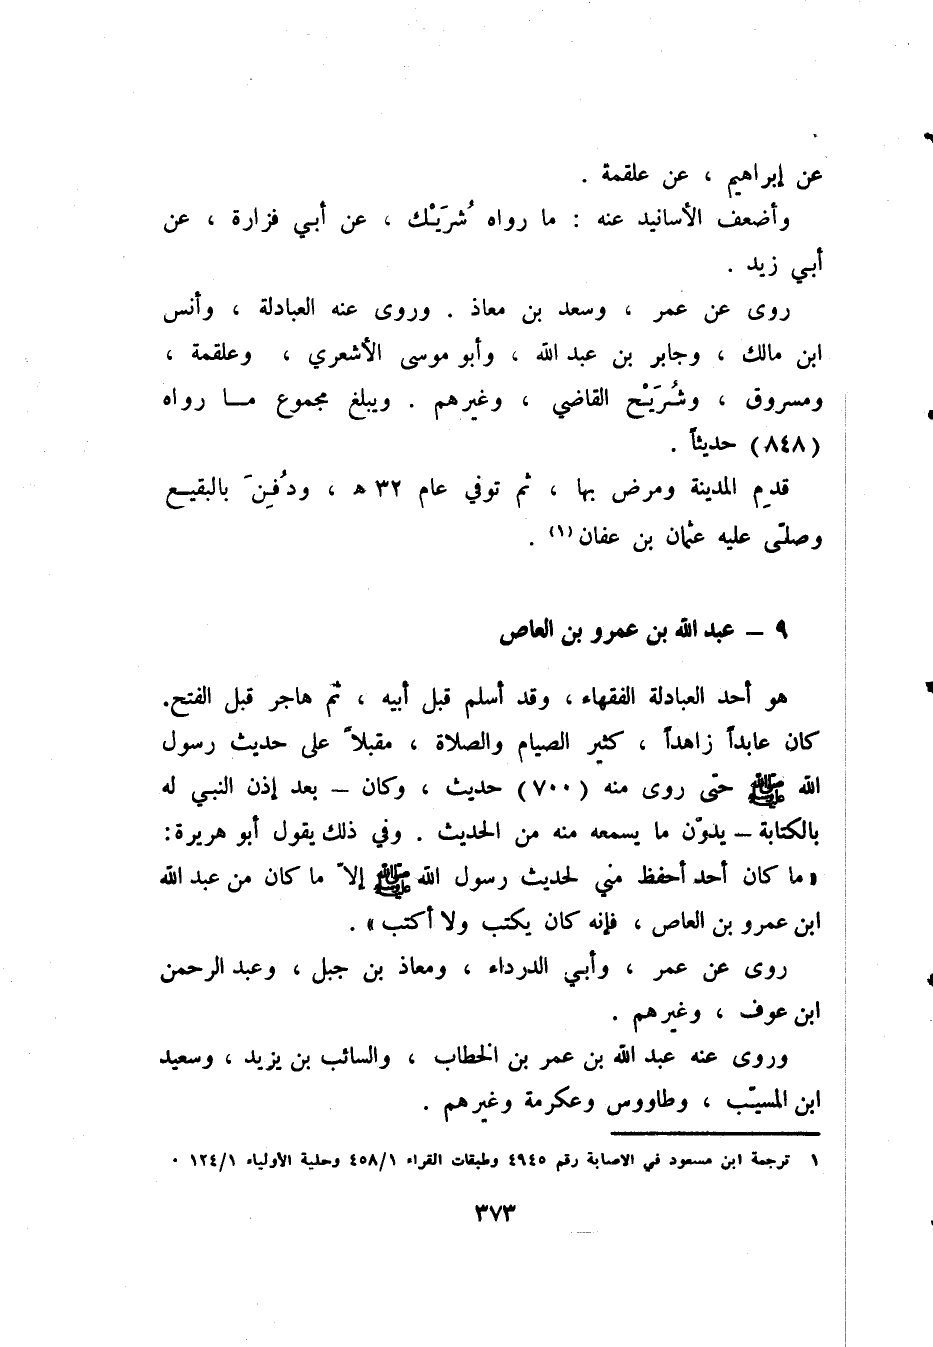 عن إبراهيم ، عن علقمة .
وأضعف الأسانيد عنه : ما رواه شُرَيْك ، عن أبي فزارة ، عن
أبي زيد .
روى عن عمر ، وسعد بن معاذ . وروى عنه العبادلة ، وأنس
ابن مالك ، وجابر بن عبد الله ، وأبو موسى الأشعري ، وعلقمة ،
ومسروق ، وشُرَيْح القاضي ، وغيرهم . ويبلغ مجموع مــا رواه
(٨٤٨) حديثاً .
قدِم المدينة ومرض بها ، ثم توفي عام ٣٢ ه ، ودُفِنَ بالبقيع
وصلّى عليه عثمان بن عفان(١) .
٩ – عبد الله بن عمرو بن العاص
هو أحد العبادلة الفقهاء ، وقد أسلم قبل أبيه ، ثم هاجر قبل الفتح.
كان عابداً زاهداً ، كثير الصيام والصلاة ، مقبلاً على حديث رسول
الله ﷺ حتى روى منه (٧٠٠) حديث ، وكان – بعد إذن النبي له
بالكتابة – يدوّن ما يسمعه منه من الحديث . وفي ذلك يقول أبو هريرة :
« ما كان أحد أحفظ مني لحديث رسول الله ﷺ إلاّ ما كان من عبد الله
ابن عمرو بن العاص ، فإنه كان يكتب ولا أكتب » .
روى عن عمر ، وأبي الدرداء ، ومعاذ بن جبل ، وعبد الرحمن
ابن عوف ، وغيرهم .
وروى عنه عبد الله بن عمر بن الخطاب ، والسائب بن يزيد ، وسعيد
ابن المسيّب ، وطاووس وعكرمة وغيرهم .
١ ترجمة ابن مسعود في الاصابة رقم ٤٩٤٥ وطبقات القراء ٤٥٨/١ وحلية الأولياء ١٢٤/١ .
٣٧٣